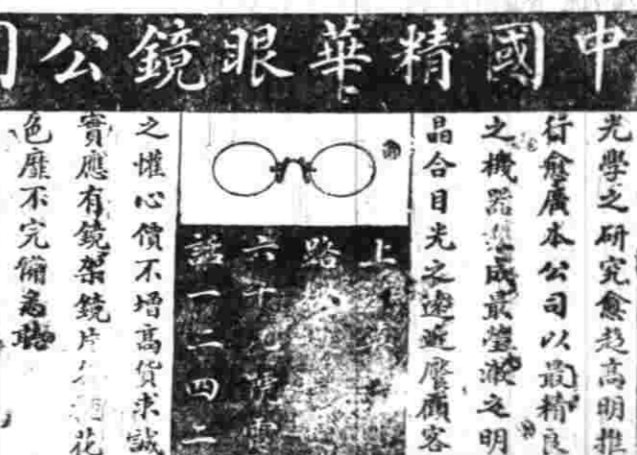 中國精華眼鏡公司
光學之研究愈趨高明推
行愈廣本公司以最精良
之機器成最瀅澈之明
晶合目光之遠近饜顧客
上
路
六十九號電
話一二四二
之懽心價不增高貨求誠
實應有鏡架鏡片花
色靡不完備